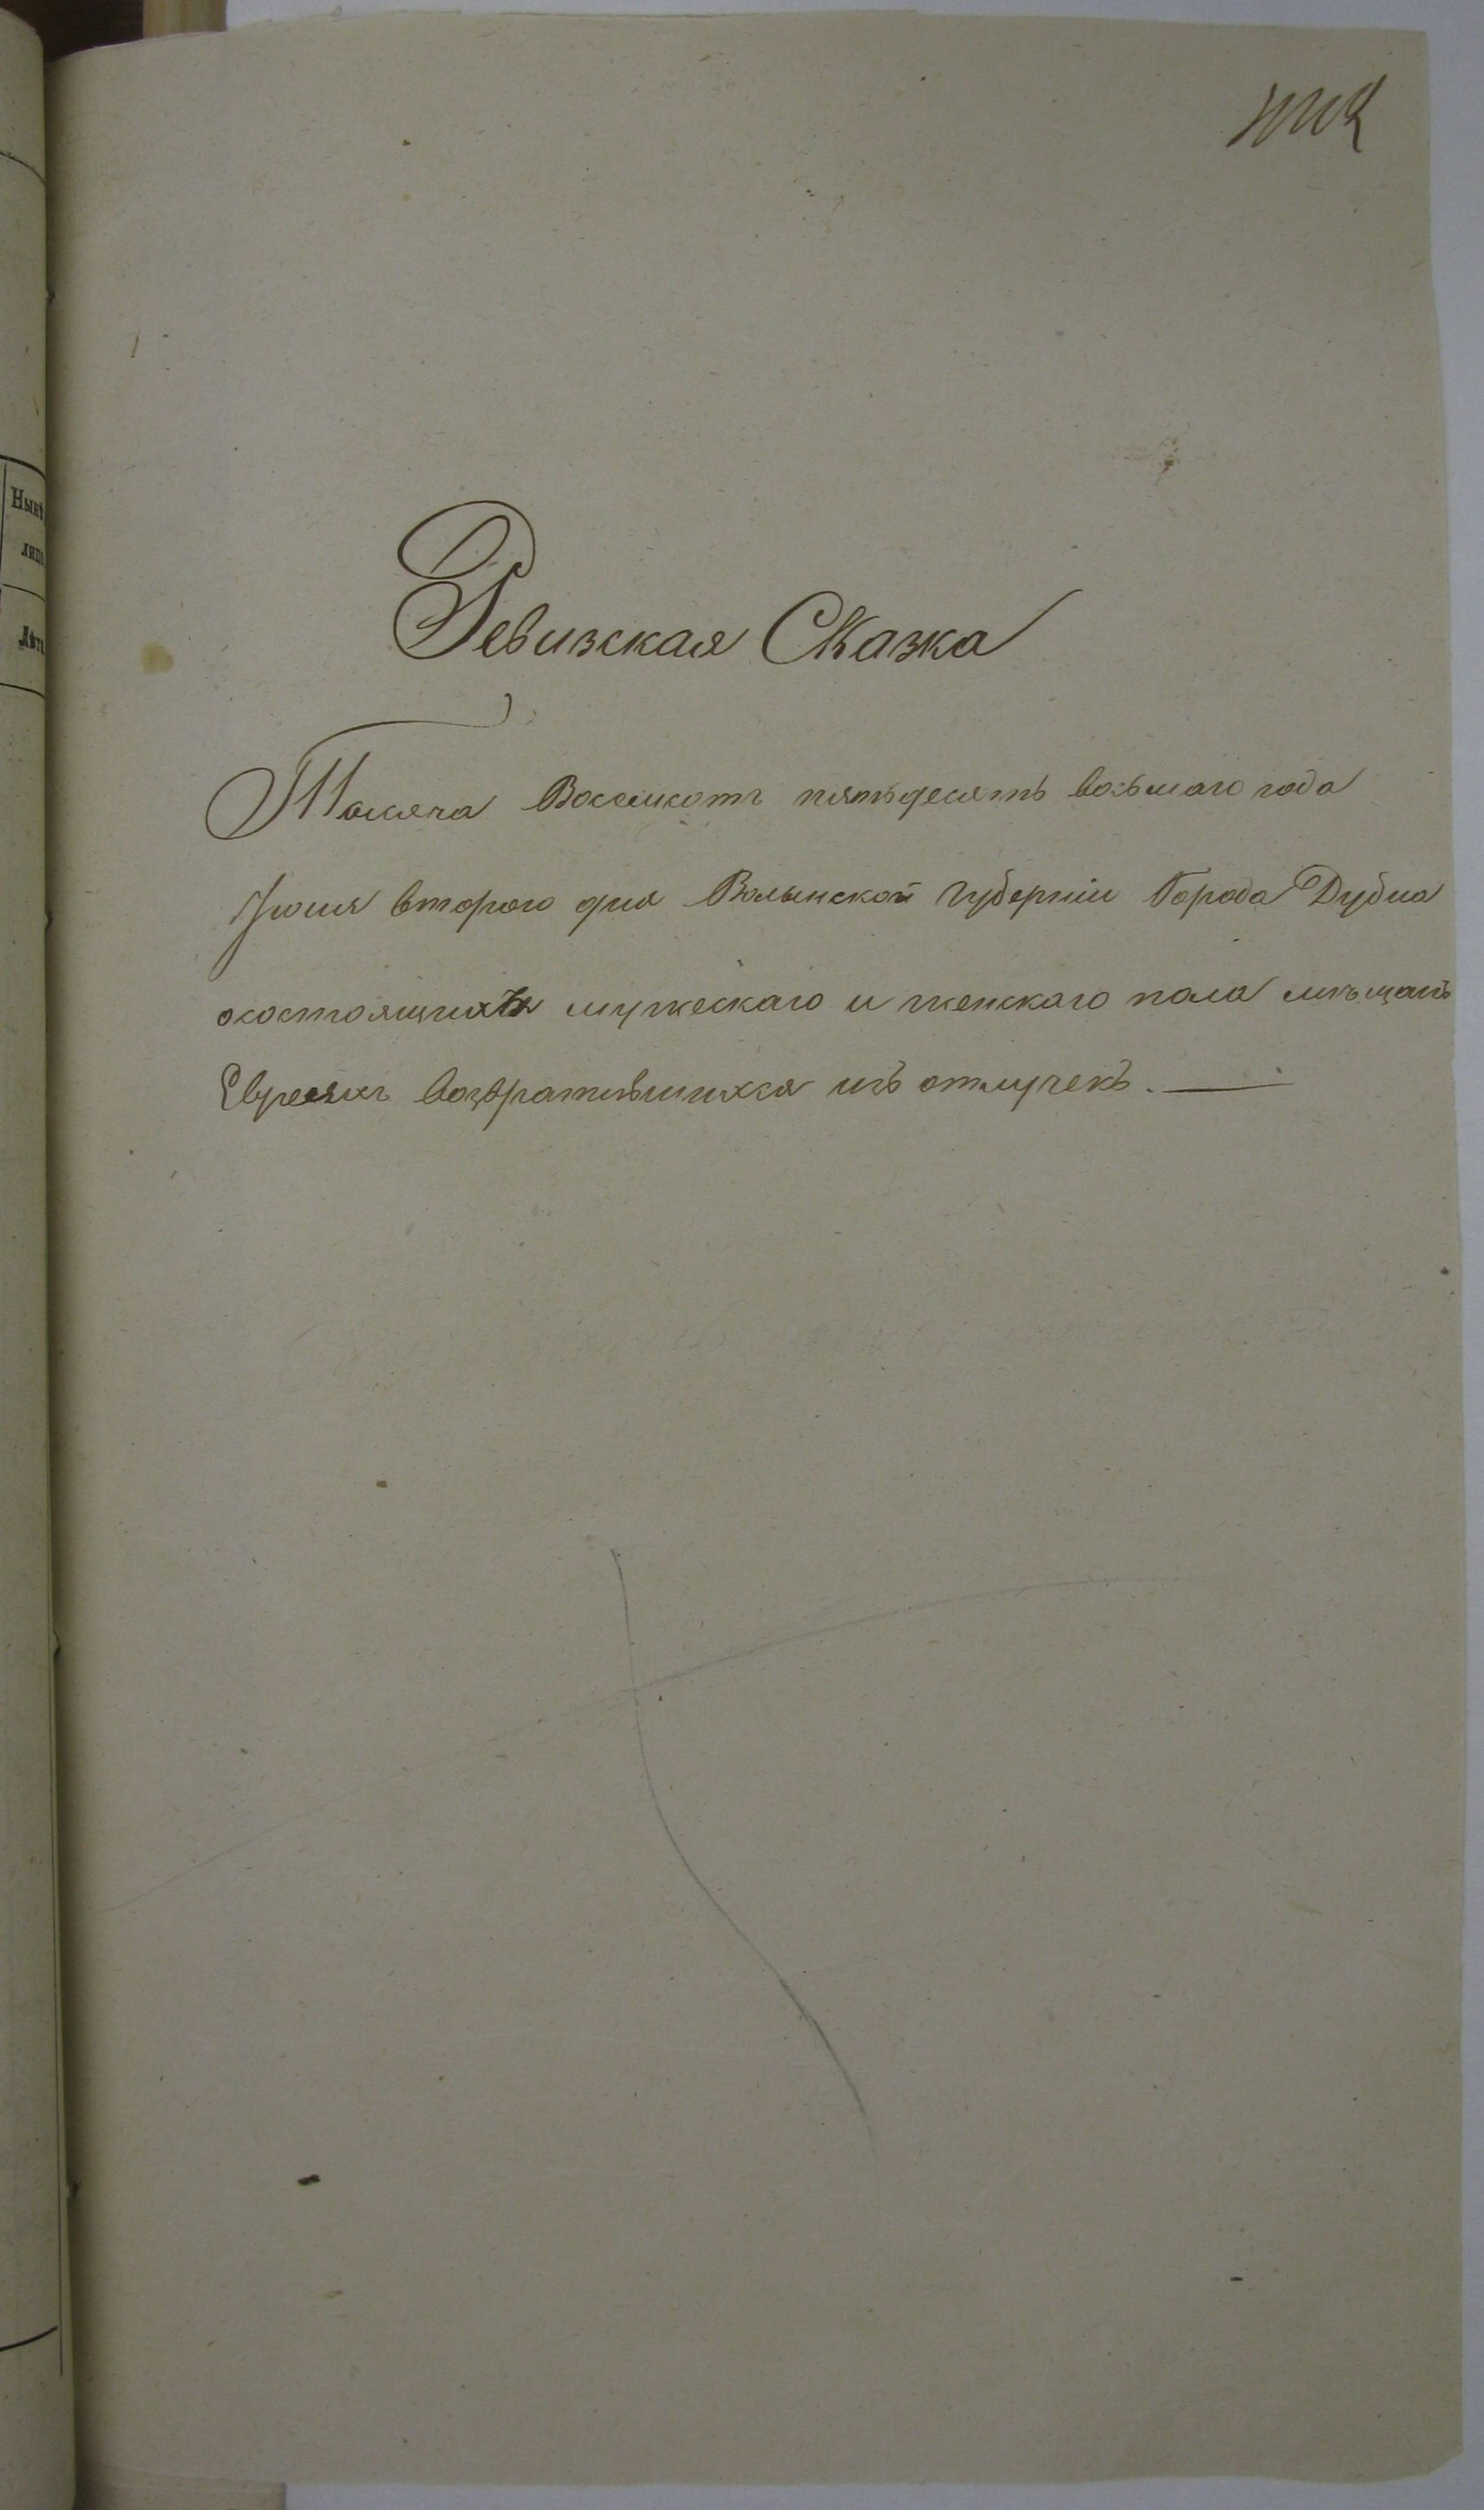 Ревизская Сказка
Тысяча Восемсотъ пятьдесятъ восьмаго года
Іюня второго дня Волынской губерніи Города Дубна
осостоящихъ мужескаго и женскаго пола мѣщанъ
Евреяхъ возвратившихся изъ отлучекъ.
Нынѣ
лицо
Лѣта